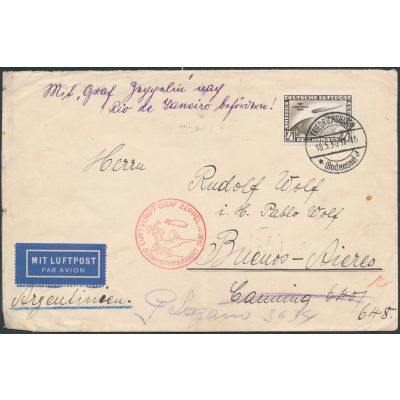 Mit „Graf Zeppelin“ nach
Rio de Janeiro befördern!
FRIEDRICHSHAFEN
18.5.30.17-18
(Bodensee) d
Herrn
Rudolf Wolf
i. H. Pablo Wolf
Buenos-Aires
Canning 640/
648.
LUFTSCHIFF GRAF ZEPPELIN
SÜDAMERIKAFAHRT
MIT LUFTPOST
PAR AVION
Argentinien.
P. Lozano 3674